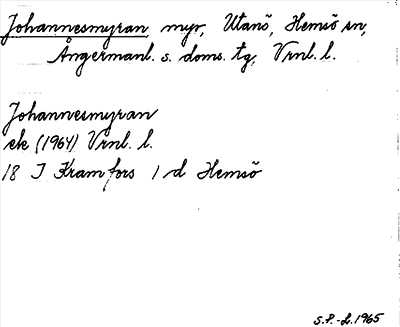 Johannesmyran myr, Utanö, Hemsö sn,
Ångermanl. s. doms. tg, Vrnl. l.
Johannesmyran
ek (1964) Vrnl. l.
18 I Kramfors 1 d Hemsö
S.P.-L. 1965